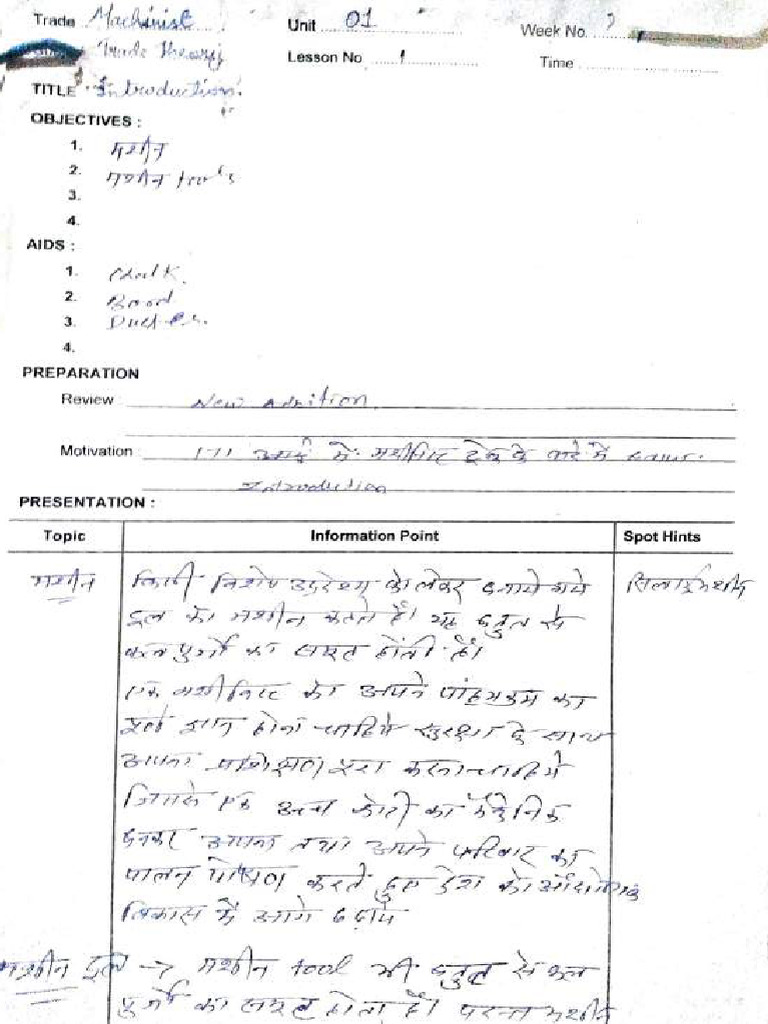 Trade Machinist Unit 01 Week No.
Trade Theory Lesson No 1 Time
TITLE Introduction
OBJECTIVES :
1. मशीन
2. मशीन tools
3.
4.
AIDS :
1. Chalk
2. Board
3. Duster
4.
PREPARATION
Review New
Motivation में मशीनिस्ट ट्रेड के बारे में
Introduction
PRESENTATION :
Topic Information Point Spot Hints
मशीन किसी विशेष उद्देश्य को लेकर बनाये गये सिलाई मशीन
टूल को मशीन कहते हैं। यह बहुत से
कल पुर्जों का समूह होती है।
एक मशीनिस्ट को अपने का
पूर्ण ज्ञान होना चाहिये सुरक्षा के साथ
अपना प्रशिक्षण पूरा करना चाहिये
जिससे एक उच्च कोटी का
बनकर अपना तथा अपने परिवार का
पालन पोषण करते हुए देश को औद्योगिक
विकास में आगे बढ़ाये
मशीन टूल → मशीन tool भी बहुत से कल
पुर्जों का समूह होता है। परन्तु मशीन